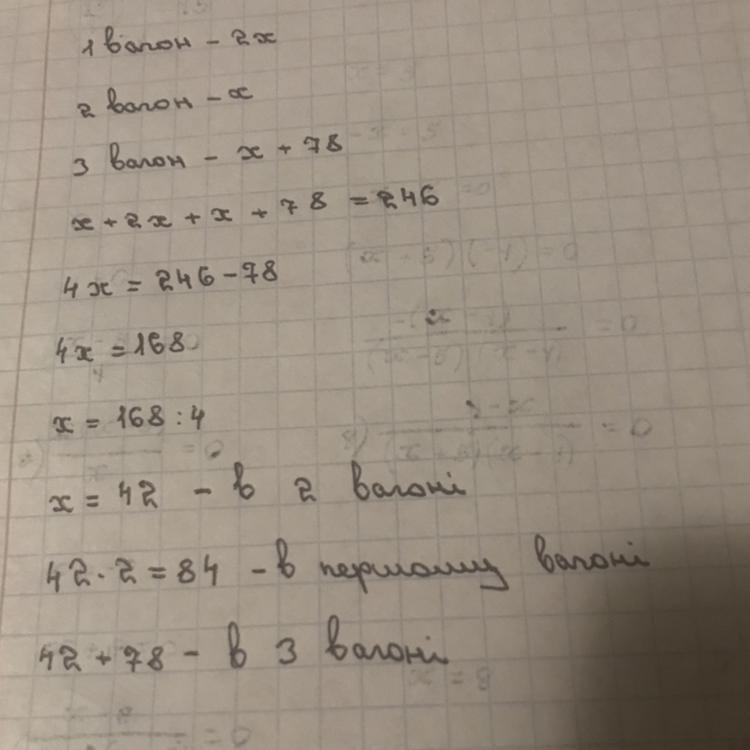 1 вагон - 2x
2 вагон - x
3 вагон - x + 78
x + 2x + x + 78 = 246
4x = 246 - 78
4x = 168
x = 168 : 4
x = 42 - в 2 вагоні
42 · 2 = 84 - в першому вагоні
42 + 78 - в 3 вагоні